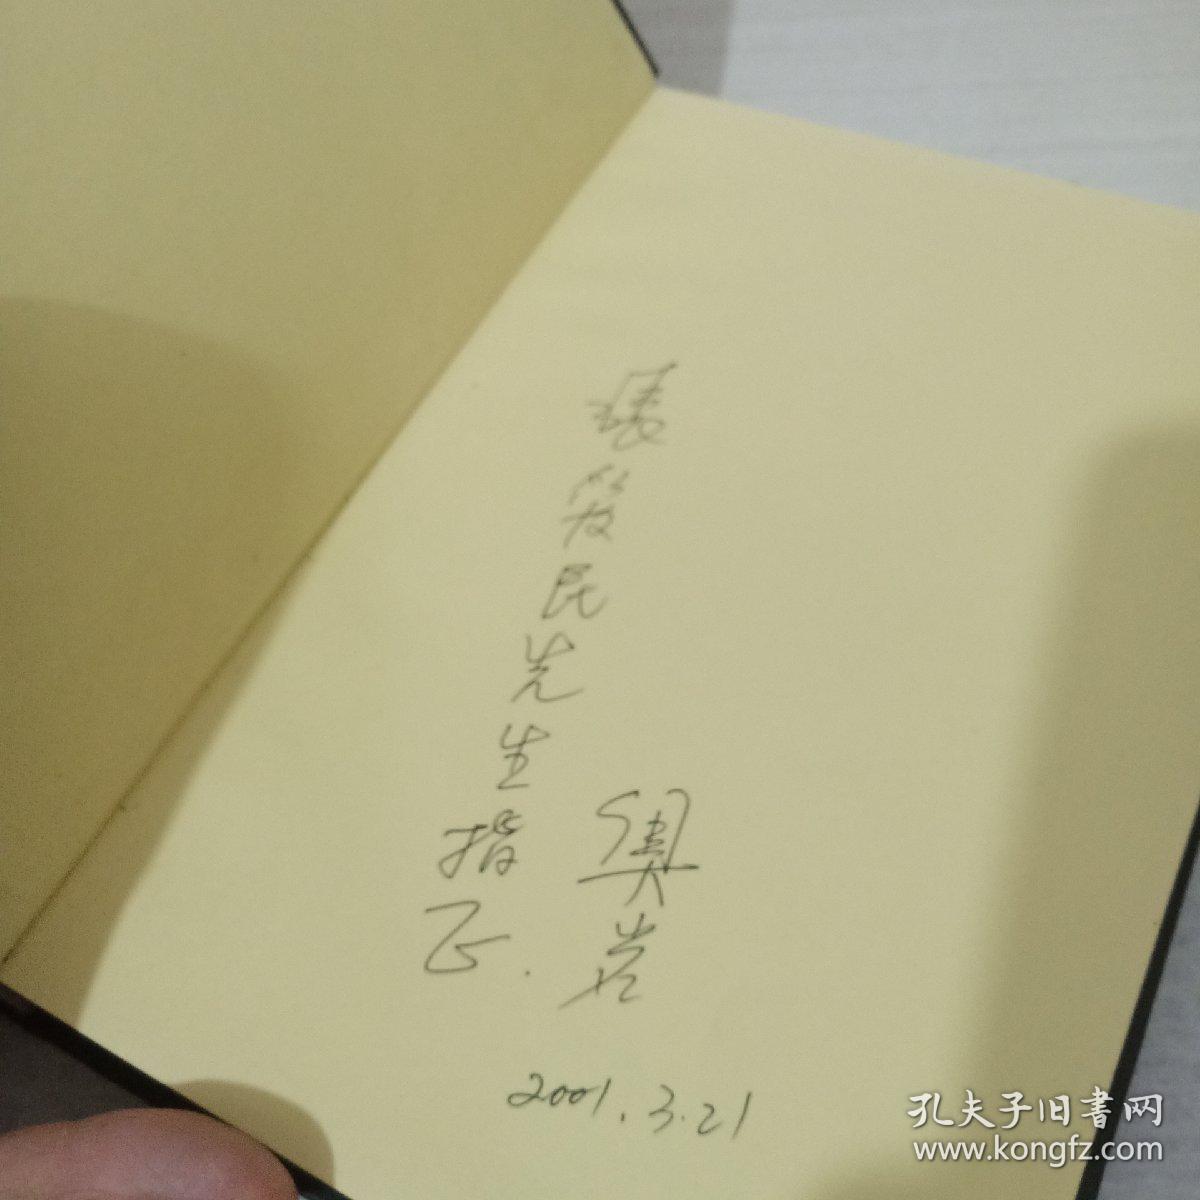 民先生指正.
奥岩
2001.3.21
孔夫子旧書网
www.kongfz.com